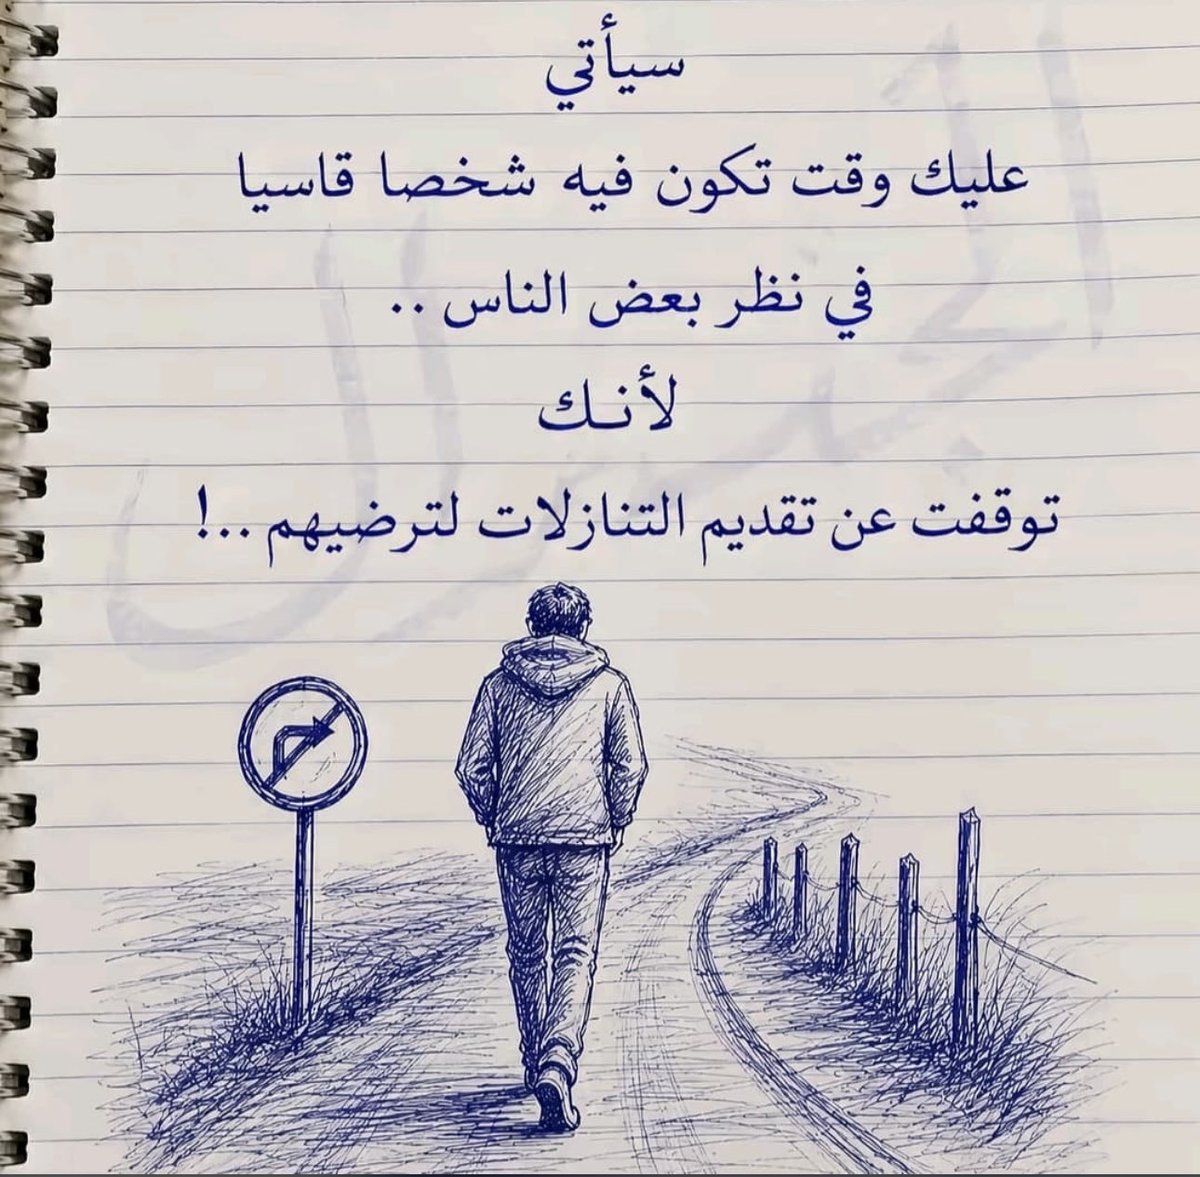 سيأتي
عليك وقت تكون فيه شخصا قاسيا
في نظر بعض الناس ..
لأنك
توقفت عن تقديم التنازلات لترضيهم ..!
الجنرال